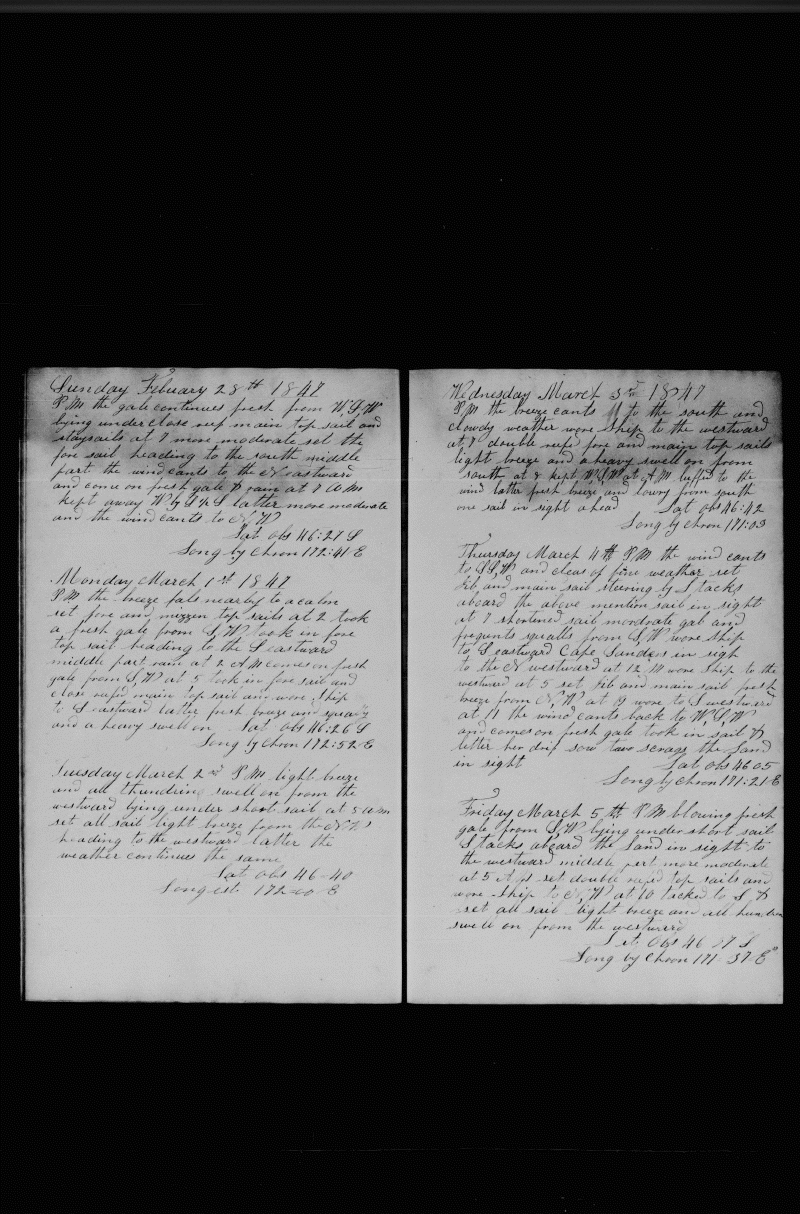 Sunday Febuary 28th 1847
P M the gale continues fresh from W,S,W
lying under close reef main top sail and
staysails at 7 more moderate set the
fore sail heading to the south middle
part the wind cants to the N eastward
and come on fresh gale & rain at 7 A M
kept away W by S & S latter more moderate
and the wind cants to N,W
Lat obs 46:27 S
Long by Chron 172:41 E
Monday March 1st 1847
P M the breeze fals nearby to a calm
set fore and mizzen top sails at 2 took
a fresh gale from S,W took in fore
top sail heading to the S eastward
middle part rain at 2 A M comes on fresh
gale from S,W at 5 took in fore sail and
close reefd main top sail and wore ship
to S eastward latter fresh breeze and squaly
and a heavy swell on Lat obs 46:26 S
Long by Chron 172:52 E
Tuesday March 2nd P M light breeze
and all thundring swell on from the
westward lying under short sail at 5 A M
set all sail light breeze from the N W
heading to the westward latter the
weather continues the same
Lat obs 46-40
Long est 172 E
Wednesday March 3rd 1847
P M the breeze cants to the south and
clowdy weather wore ship to the westward
at 7 double reefd fore and main top sails
light breeze and a heavy swell on from
south at 8 kept W,S,W at A M luffed to the
wind latter fresh breeze and lowry from south
one sail in sight ahead Lat obs 46:42
Long by Chron 171:03
Thursday March 4th P M the wind cants
to S,S,W and clears of fine weather set
jib and main sail steering by S tacks
aboard the above mention sail in sight
at 7 shortened sail mordrate gab and
frequents squalls from S,W wore ship
to S eastward Cape Sanders in sigh
to the N westward at 12 M wore ship to the
westward at 5 set jib and main sail fresh
breeze from N,W at 9 wore to S westward
at 11 the wind cants back to W,S,W
and comes on fresh gale took in sail &
letter her drif sow two scrags the Land
in sight Lat obs 46 05
Long by Chron 171:21 E
Friday March 5th P M blowing fresh
gale from S,W lying under short sail
S tacks aboard the Land in sight to
the westward middle part more moderate
at 5 A M set double reefd top sails and
wore ship to N,W at 10 tacked to S &
set all sail light breeze and all
swell on from the westward
Lat Obs 46 S
Long by Chron 171-37 E